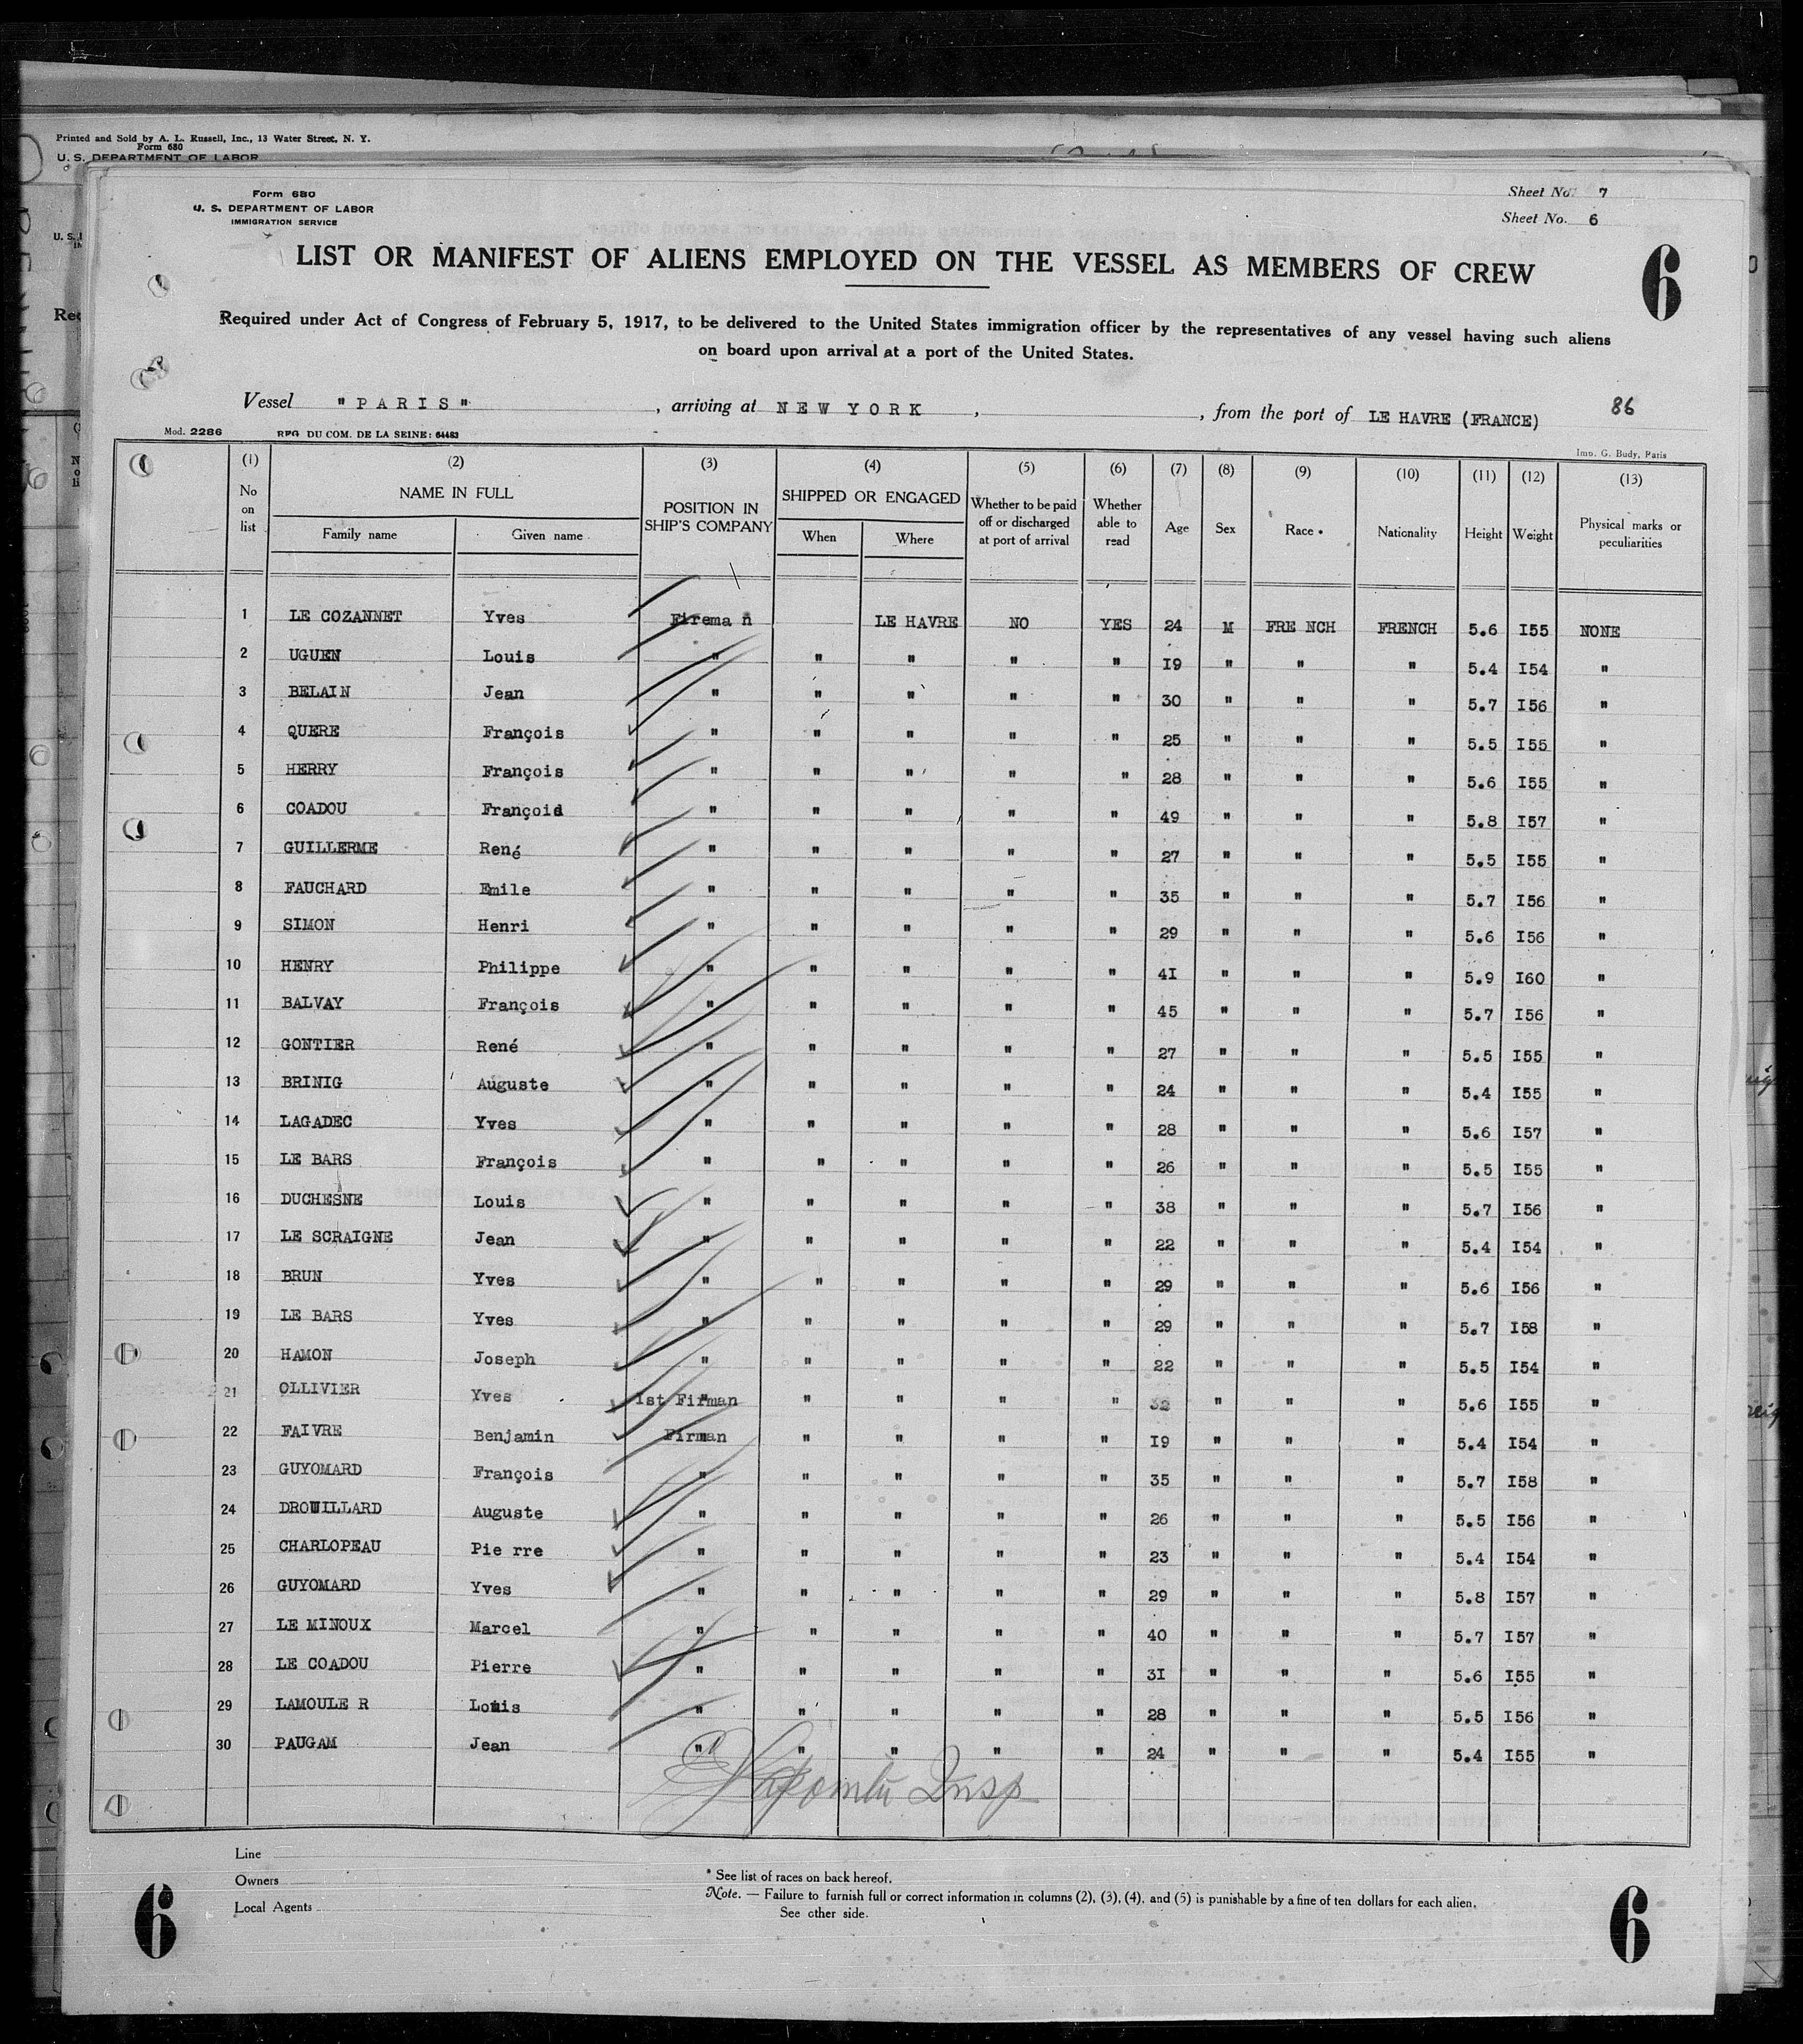 Printed and Sold by A. L. Russell, Inc., 13 Water Street, N. Y.
Form 680
U. S. DEPARTMENT OF LABOR
Form 680
U. S. DEPARTMENT OF LABOR
IMMIGRATION SERVICE
Sheet No. 7
Sheet No. 6
LIST OR MANIFEST OF ALIENS EMPLOYED ON THE VESSEL AS MEMBERS OF CREW
6
Required under Act of Congress of February 5, 1917, to be delivered to the United States immigration officer by the representatives of any vessel having such aliens
on board upon arrival at a port of the United States.
Vessel "PARIS", arriving at NEW YORK, , from the port of LE HAVRE (FRANCE) 86
Mod. 2286 REG DU COM. DE LA SEINE: 64483 Imp. G. Budy, Paris
(1) (2) (3) (4) (5) (6) (7) (8) (9) (10) (11) (12) (13)
No on list NAME IN FULL Family name Given name POSITION IN SHIP'S COMPANY SHIPPED OR ENGAGED When Where Whether to be paid off or discharged at port of arrival Whether able to read Age Sex Race * Nationality Height Weight Physical marks or peculiarities
1 LE COZANNET Yves Firema n LE HAVRE NO YES 24 M FRE NCH FRENCH 5.6 I55 NONE
2 UGUEN Louis " " " " " I9 " " " 5.4 I54 "
3 BELAIN Jean " " " " " 30 " " " 5.7 I56 "
4 QUERE François " " " " " 25 " " " 5.5 I55 "
5 HERRY François " " " " " 28 " " " 5.6 I55 "
6 COADOU Françoid " " " " " 49 " " " 5.8 I57 "
7 GUILLERME René " " " " " 27 " " " 5.5 I55 "
8 FAUCHARD Emile " " " " " 35 " " " 5.7 I56 "
9 SIMON Henri " " " " " 29 " " " 5.6 I56 "
10 HENRY Philippe " " " " " 4I " " " 5.9 I60 "
11 BALVAY François " " " " " 45 " " " 5.7 I56 "
12 GONTIER René " " " " " 27 " " " 5.5 I55 "
13 BRINIG Auguste " " " " " 24 " " " 5.4 I55 "
14 LAGADEC Yves " " " " " 28 " " " 5.6 I57 "
15 LE BARS François " " " " " 26 " " " 5.5 I55 "
16 DUCHESNE Louis " " " " " 38 " " " 5.7 I56 "
17 LE SCRAIGNE Jean " " " " " 22 " " " 5.4 I54 "
18 BRUN Yves " " " " " 29 " " " 5.6 I56 "
19 LE BARS Yves " " " " " 29 " " " 5.7 I58 "
20 HAMON Joseph " " " " " 22 " " " 5.5 I54 "
21 OLLIVIER Yves 1st Firman " " " " 32 " " " 5.6 I55 "
22 FAIVRE Benjamin Firman " " " " I9 " " " 5.4 I54 "
23 GUYOMARD François " " " " " 35 " " " 5.7 I58 "
24 DROUILLARD Auguste " " " " " 26 " " " 5.5 I56 "
25 CHARLOPEAU Pie rre " " " " " 23 " " " 5.4 I54 "
26 GUYOMARD Yves " " " " " 29 " " " 5.8 I57 "
27 LE MINOUX Marcel " " " " " 40 " " " 5.7 I57 "
28 LE COADOU Pierre " " " " " 3I " " " 5.6 I55 "
29 LAMOULE R Louis " " " " " 28 " " " 5.5 I56 "
30 PAUGAM Jean " " " " " 24 " " " 5.4 I55 "
Insp
Line
Owners
Local Agents
* See list of races on back hereof.
Note. — Failure to furnish full or correct information in columns (2), (3), (4), and (5) is punishable by a fine of ten dollars for each alien.
See other side.
6 6